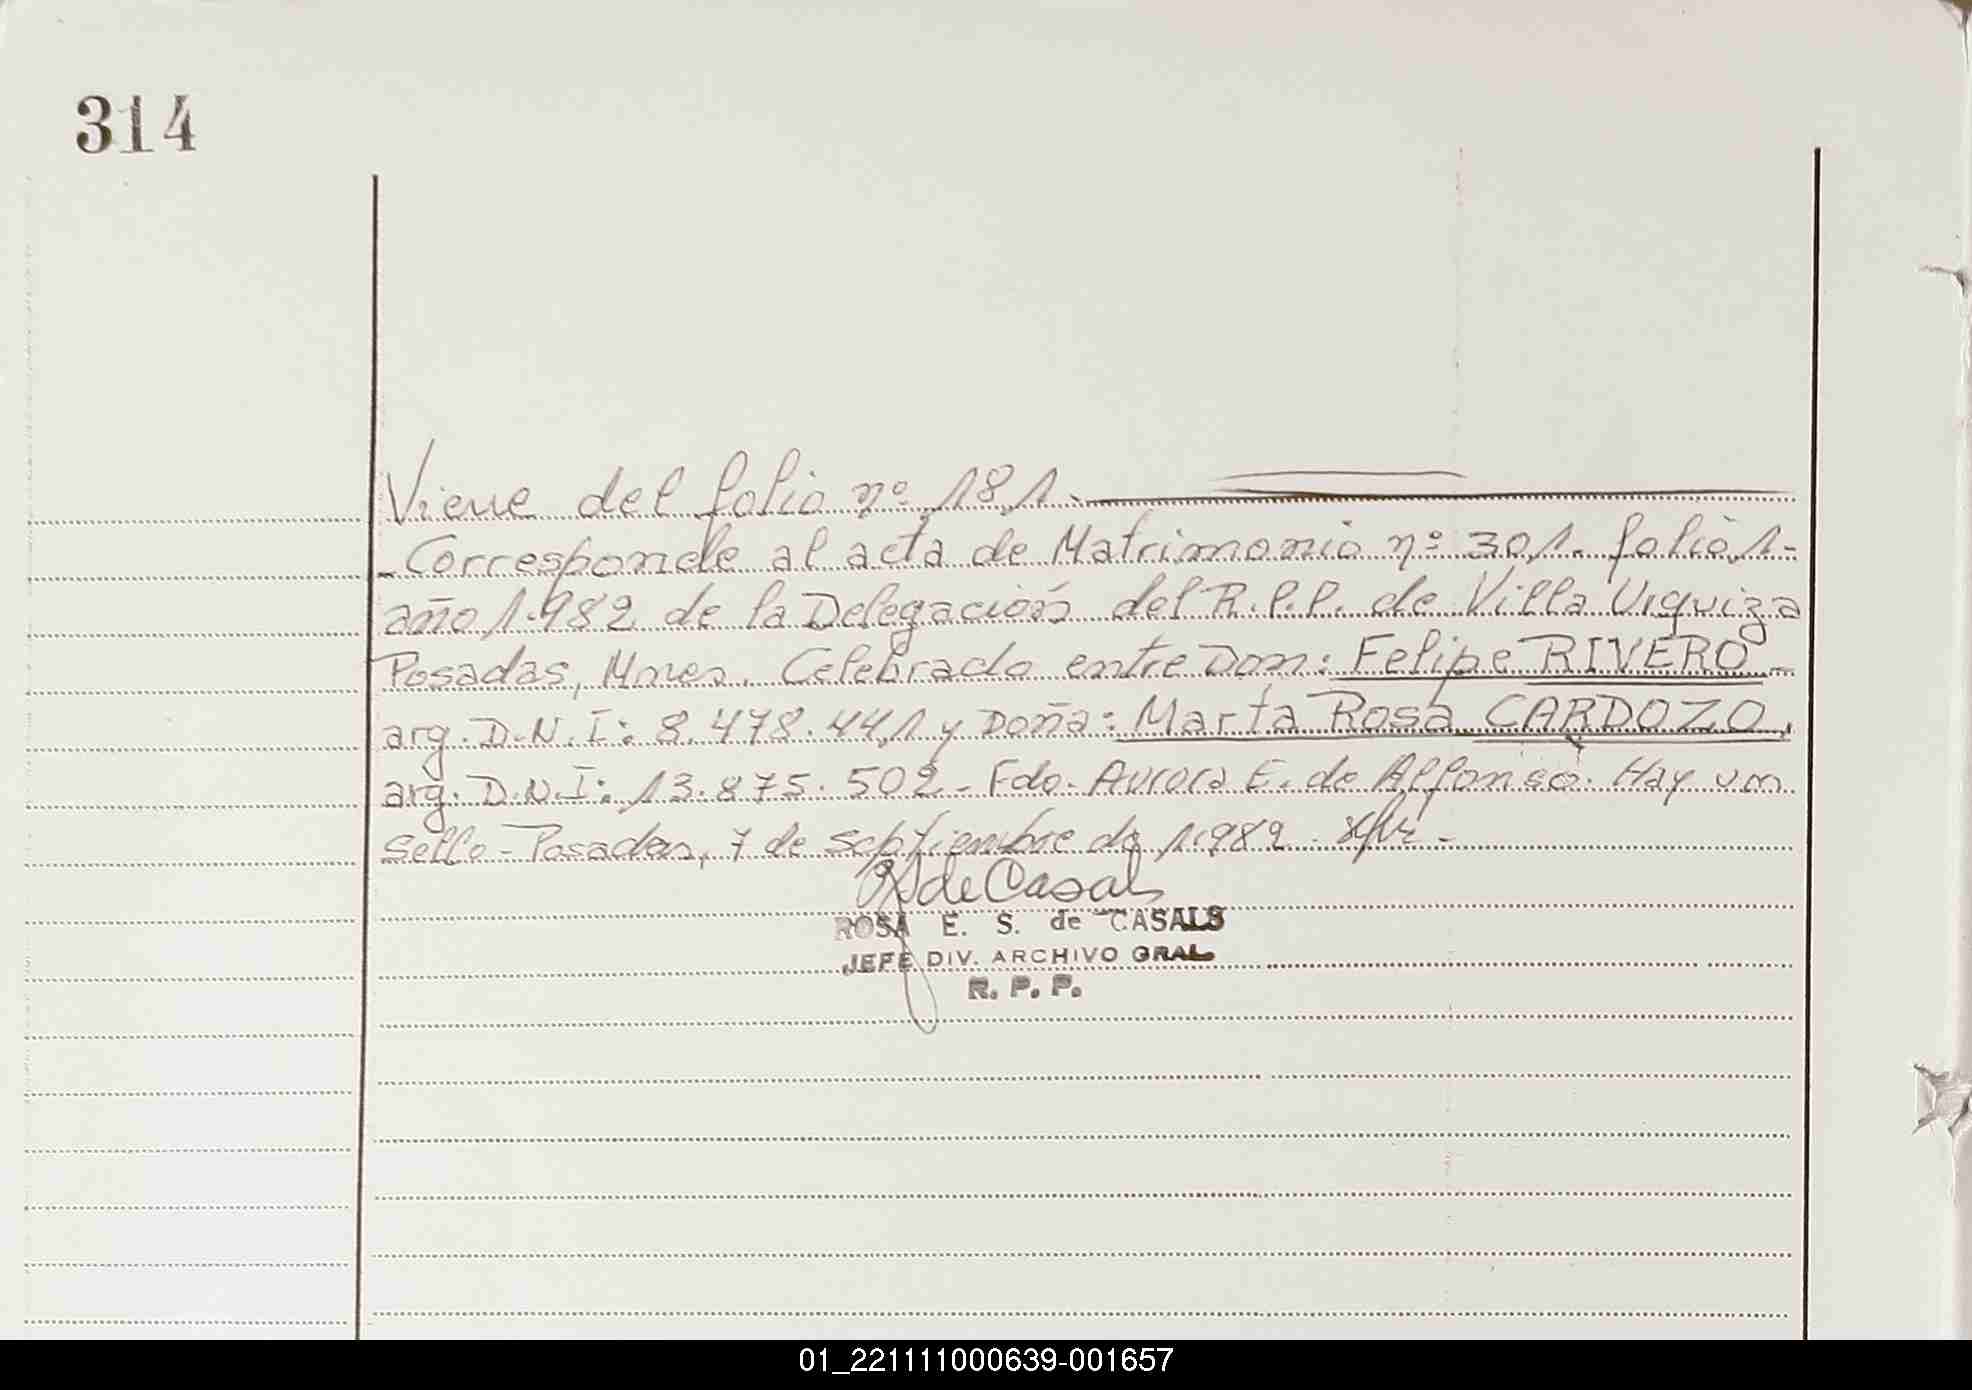 314
Viene del folio nº 181.
- Corresponde al acta de Matrimonio nº 301. folio 1-
año 1.982 de la Delegación del R.P.P. de Villa Urquiza
Posadas, Mnes. Celebrado entre Don: Felipe RIVERO -
arg. D.N.I: 8.478.441 y Doña: Marta Rosa CARDOZO,
arg. D.N.I: 13.875.502 - Fdo. Aurora E. de Alfonso. Hay un
sello - Posadas, 7 de septiembre de 1.982.
de Casals
ROSA E. S. de CASALS
JEFE DIV. ARCHIVO GRAL
R. P. P.
01_221111000639-001657